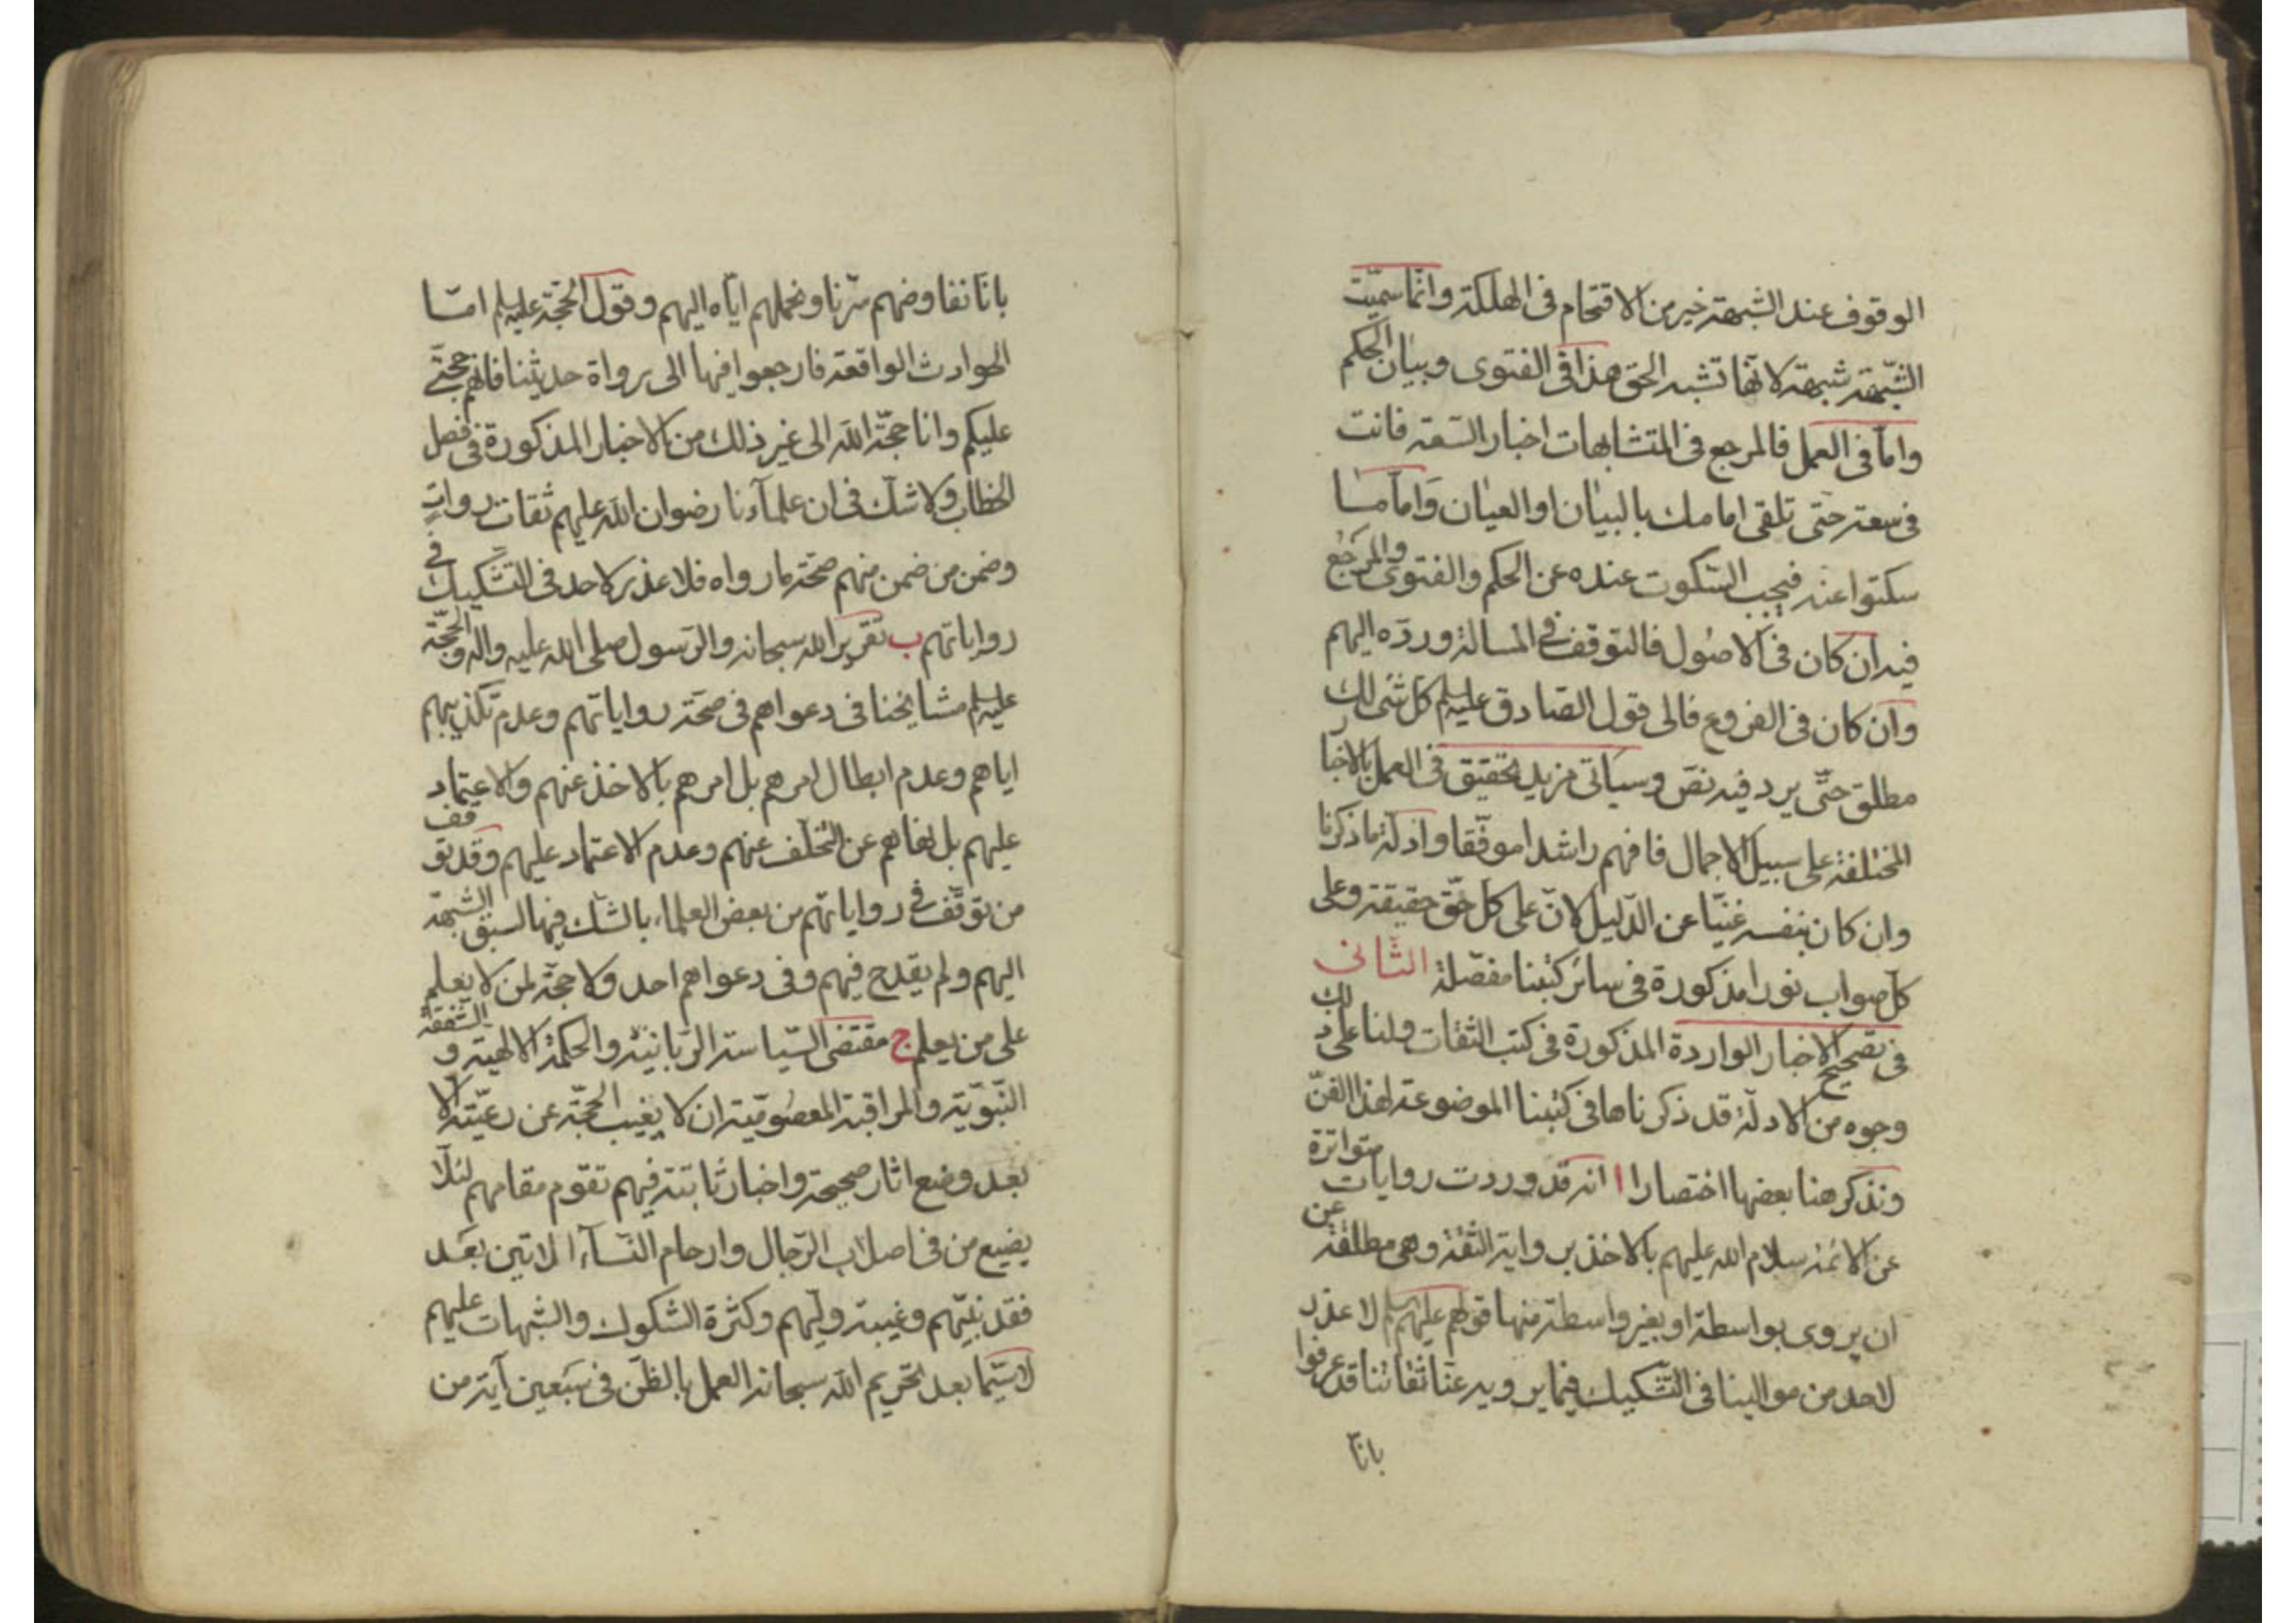 الوقوف عند الشبهة خير من الاقتحام فى الهلكة وانّما سمّيت
الشّبهة شبهة لانّها تشبه الحق هذا فى الفتوى وبيان الحكم
وامّا فى العمل فالمرجع فى المتشابهات اخبار السّعة فانت
فى سعة حتى تلقى امامك بالبيان او العيان وامّا ما
سكتوا عنه فيجب السّكوت عنده عن الحكم والفتوى والمرجع
فيه ان كان فى الاصول فالتوقف فى المسالة وردّه اليهم
وان كان فى الفروع فالى قول الصادق عليه السلم كل شئ لك
مطلق حتّى يرد فيه نصّ وسياتى مزيد تحقيق فى العمل بالاخبار
المختلفة على سبيل الاجمال فافهم راشدا موفّقا وادلّة ما ذكرنا
وان كان بنفسه غنيّا عن الدّليل لانّ على كل حقّ حقيقة وعلى
كل صواب نورا مذكورة فى سائر كتبنا مفصّلة الثانى
فى تصحيح الاخبار الواردة المذكورة فى كتب الثقات ولنا على ذلك
وجوه من الادلّة قد ذكرناها فى كتبنا الموضوعة لهذا الفنّ
ونذكر هنا بعضها اختصارا ا انه قد وردت روايات متواترة
عن الائمة سلام الله عليهم بالاخذ برواية الثقة وهى مطلقة عن
ان يروى بواسطة او بغير واسطة منها قولهم عليهم السلم لا عذر
لاحد من موالينا فى التّشكيك فيما يرويه عنّا ثقاتنا قد عرفوا
بانّا
بانّا نفاوضهم سّرنا ونحملهم ايّاه اليهم وقول الحجّة عليه السلم امّا
الحوادث الواقعة فارجعوا فيها الى رواة حديثنا فانهم حجّتى
عليكم وانا حجّة الله الى غير ذلك من الاخبار المذكورة فى فصل
الخطاب ولا شكّ فى ان علمآءنا رضوان الله عليهم ثقات روات
وضمن من ضمن منهم صحّة ما رواه فلا عذر لاحد فى التّشكيك فى
رواياتهم ب تقرير الله سبحانه والرّسول صلى الله عليه واله والحجّة
عليه السلم مشايخنا فى دعواهم فى صحّة رواياتهم وعدم تكذيبهم
اياهم وعدم ابطال امرهم بل امرهم بالاخذ عنهم والاعتماد
عليهم بل نهاهم عن التّخلّف عنهم وعدم الاعتماد عليهم وقد توقف
من توقّف فى رواياتهم من بعض العلماء بالشّك فيها لسبق الشّبهة
اليهم ولم يقدح فيهم وفى دعواهم احد ولا حجّة لمن لا يعلم
على من يعلم ج مقتضى السّياسة الرّبانيّة والحكمة الالهية والشّفقة
النّبويّة والمراقبة المعصوميّة ان لا يغيب الحجّة عن رعيّته الّا
بعد وضع اثار صحيحة واخبار ثابتة فيهم تقوم مقامهم لئلّا
يضيع من فى اصلاب الرّجال وارحام النّسآء الاتين بعد
فقد نبيّهم وغيبة وليّهم وكثرة الشّكوك والشّبهات عليهم
لاسيّما بعد تحريم الله سبحانه العمل بالظّن فى سبعين آية من